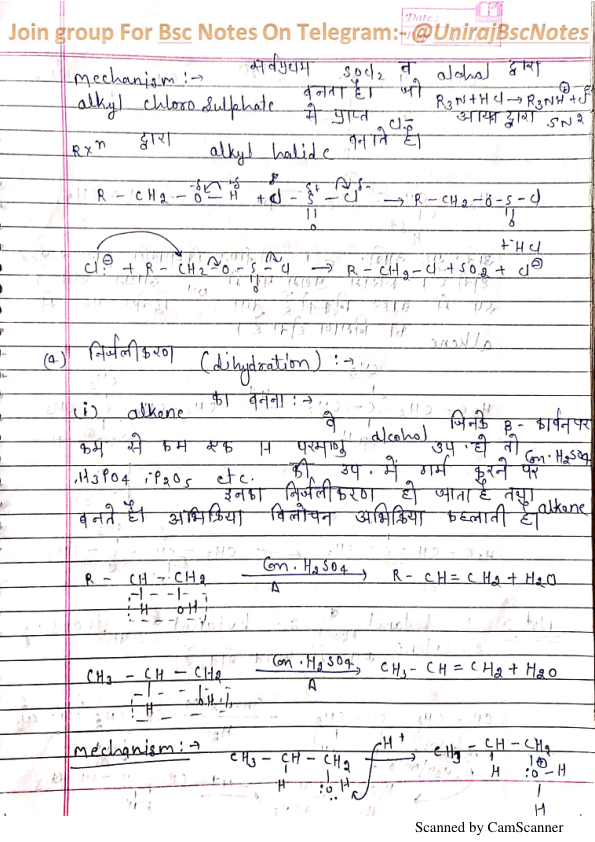 Join group For Bsc Notes On Telegram:- @UnirajBscNotes
Date :
mechanism :→ सर्वप्रथम SOCl2 व alcohol द्वारा
alkyl chlorosulphate बनता है। जो R3N+HCl → R3NH⊕+Cl⊖
से प्राप्त Cl⊖ आयन द्वारा SN2
Rxn द्वारा alkyl halide बनाते है।
R - CH2 - O - H + Cl - S - Cl → R-CH2-O-S-Cl
O O
+HCl
Cl:⊖ + R - CH2 - O - S - Cl → R - CH2 - Cl + SO2 + Cl⊖
O
(4) निर्जलीकरण (dihydration) :→
(i) alkene का बनना :→
वे alcohol जिनके β - कार्बन पर
कम से कम एक H परमाणु उप. हो तो Con. H2SO4
, H3PO4 , P2O5 etc. की उप. में गर्म करने पर
इनका निर्जलीकरण हो जाता है तथा alkene
बनते है। अभिक्रिया विलोपन अभिक्रिया कहलाती है।
R - CH - CH2 Con. H2SO4 → R - CH = CH2 + H2O
H OH Δ
CH3 - CH - CH2 Con. H2SO4 → CH3 - CH = CH2 + H2O
H OH Δ
mechanism :→ CH3 - CH - CH2 H+ → CH3 - CH - CH2
H :O: H H :O⊕ - H
H
Scanned by CamScanner